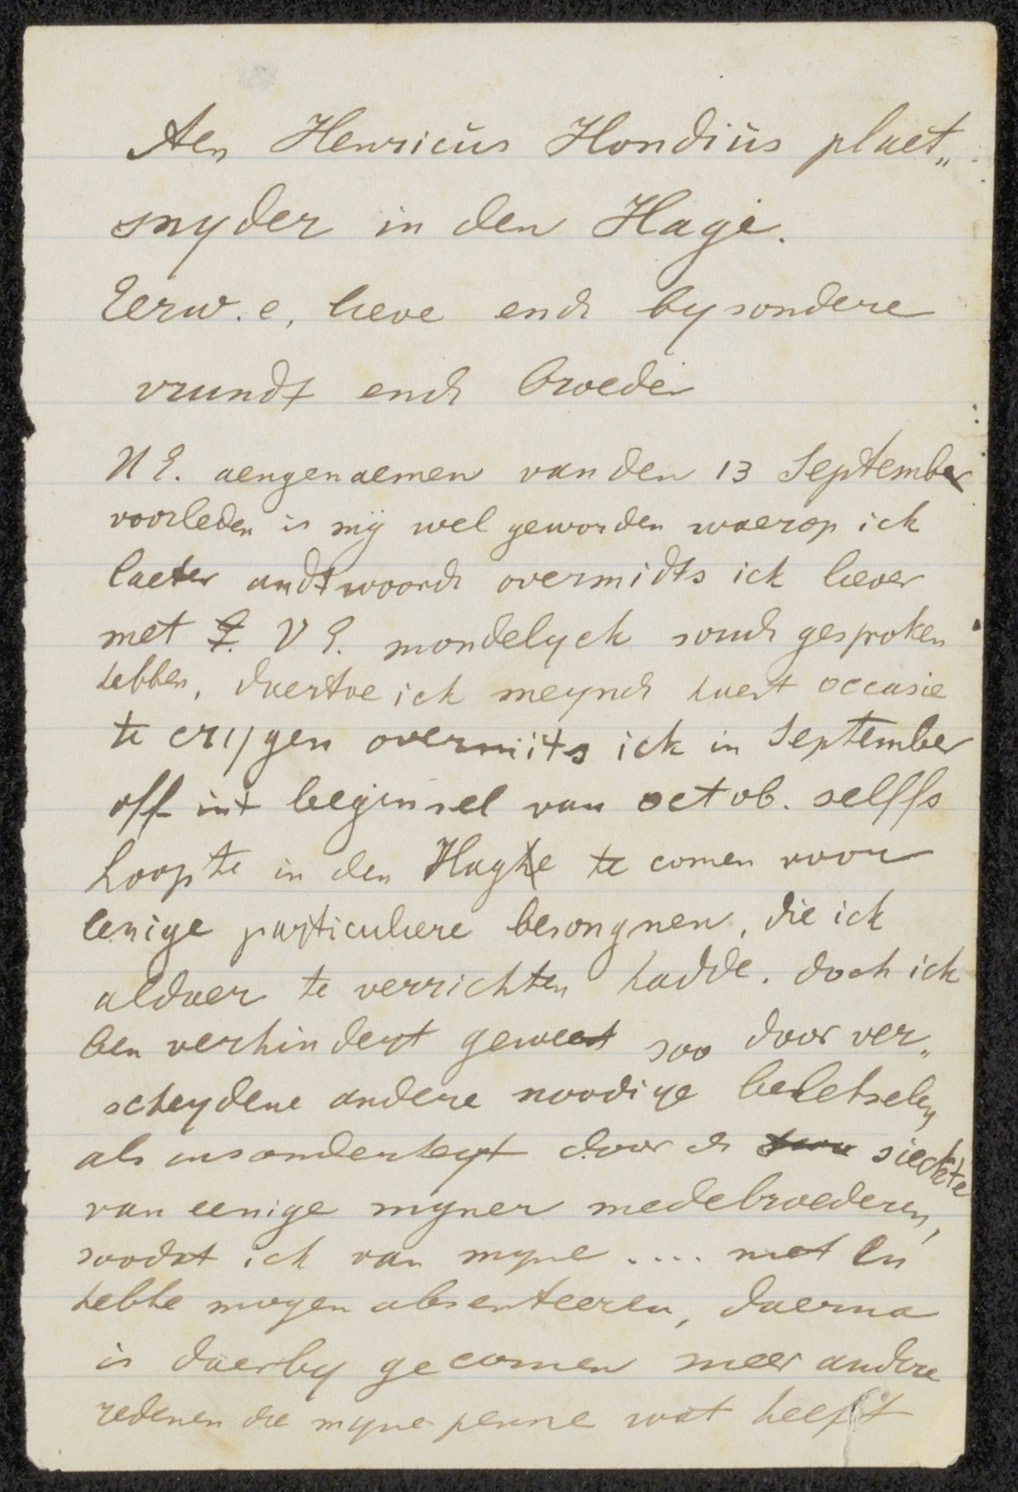 Aen Henricus Hondius plaet„
snyder in den Hage.
Eerw. e, lieve ende bysondere
vrundt ende broeder
U E. aengenaemen van den 13 September
voorleden is mÿ wel geworden waerop ick
laeter andtwoorde overmidts ick liever
met V E. mondelyck soude gesproken
hebben, daertoe ick meynde haest occasie
te crijgen overmits ick in September
off int beginsel van octob. selffs
hoopte in den Haghe te comen voor
eenige particuliere besongnen, die ick
aldaer te verrichten hadde. doch ick
ben verhindert geweest soo door ver„
scheydene andere noodige beletselen
als insonderheyt door de sieckte
van eenige myner medebroederen,
soodat ick van myne .... niet
hebbe mogen absenteeren, daerna
is daerby gecomen meer andere
redenen die myne penne wat heeft